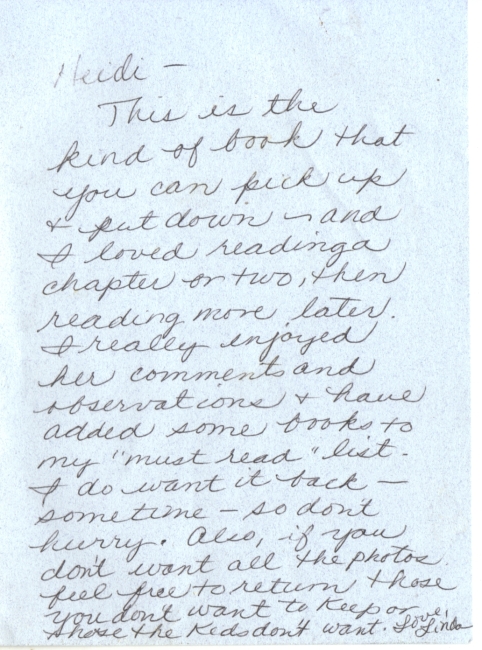 Heidi –
This is the
kind of book that
you can pick up
& put down – and
I loved reading a
chapter or two, then
reading more later.
I really enjoyed
her comments and
observations & have
added some books to
my "must read" list.
I do want it back –
sometime – so don't
hurry. Also, if you
don't want all the photos
feel free to return those
you don't want to keep or
those the kids don't want. Love, Linda